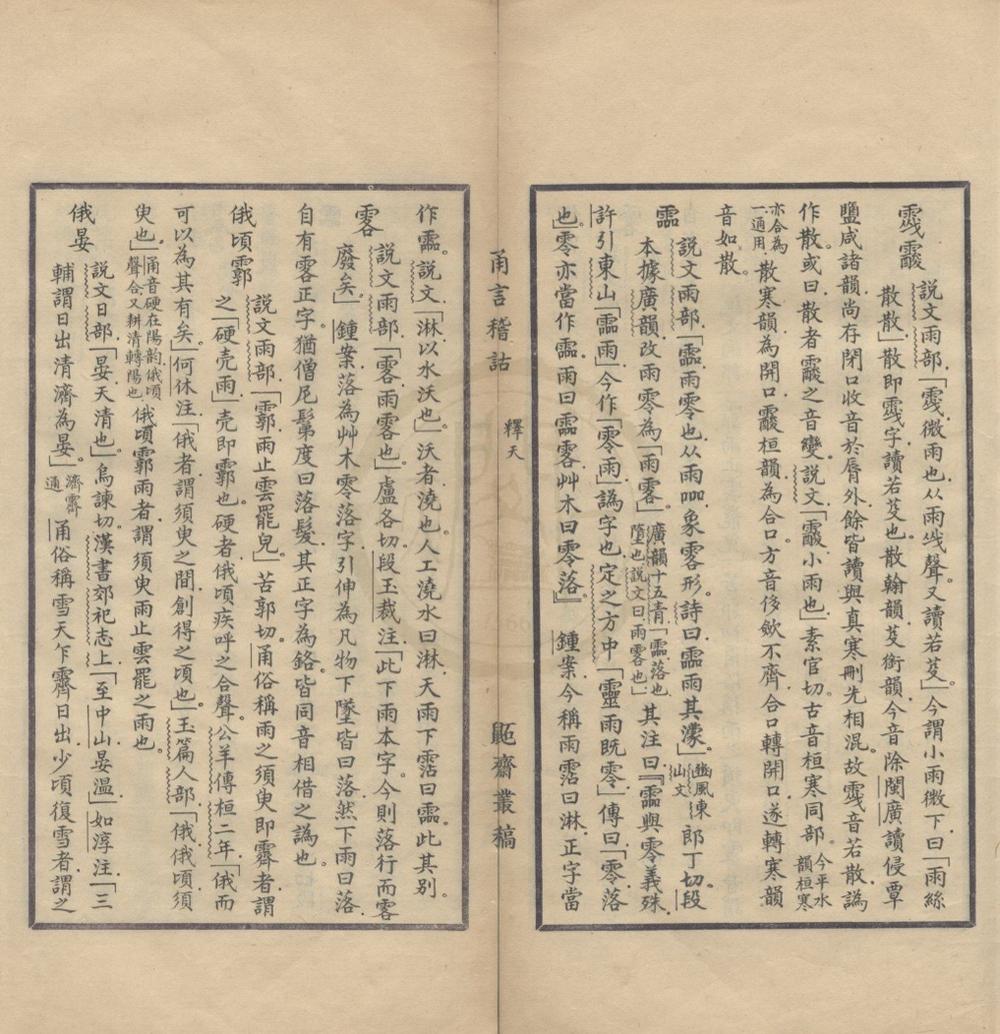 䨘霰
說文雨部「䨘微雨也从雨𢦒聲又讀若芟」今謂小雨微下曰「雨絲
散散」散即䨘字讀若芟也散翰韻芟銜韻今音除閩廣讀侵覃
鹽咸諸韻尚存閉口收音於脣外餘皆讀與真寒刪先相混故䨘音若散譌
作散或曰散者霰之音變說文「霰小雨也」素官切古音桓寒同部今平水韻桓寒
亦合為一通用散寒韻為開口霰桓韻為合口方音侈斂不齊合口轉開口遂轉寒韻
音如散
霝
說文雨部「霝雨零也从雨𠱠象零形詩曰霝雨其濛」豳風東山文郎丁切段
本據廣韻改雨零為「雨䨩」廣韻十五青「霝落也墮也說文曰雨䨩也」其注曰『霝與零義殊
許引東山「霝雨」今作「零雨」譌字也定之方中「靈雨既零」傳曰「零落
也」零亦當作霝雨曰霝䨩艸木曰零落』鍾案今稱雨霑曰淋正字當
甬言稽詁
釋天
甋齋叢稿
作霝說文「淋以水沃也」沃者澆也人工澆水曰淋天雨下霑曰霝此其別
䨩
說文雨部「䨩雨䨩也」盧各切段玉裁注「此下雨本字今則落行而䨩
廢矣」鍾案落為艸木零落字引伸為凡物下墜皆曰落然下雨曰落
自有䨩正字猶僧尼髡度曰落髮其正字為鉻皆同音相借之譌也
俄頃霩
說文雨部「霩雨止雲罷皃」苦郭切甬俗稱雨之須臾即霽者謂
之「硬壳雨」壳即霩也硬者俄頃疾呼之合聲公羊傳桓二年「俄而
可以為其有矣」何休注「俄者謂須臾之間創得之頃也」玉篇人部「俄俄頃須
臾也」甬音硬在陽韵俄頃聲合又耕清轉陽也俄頃霩雨者謂須臾雨止雲罷之雨也
俄晏
說文日部「晏天清也」烏諫切漢書郊祀志上「至中山晏溫」如淳注「三
輔謂日出清濟為晏」濟霽通甬俗稱雪天乍霽日出少頃復雪者謂之